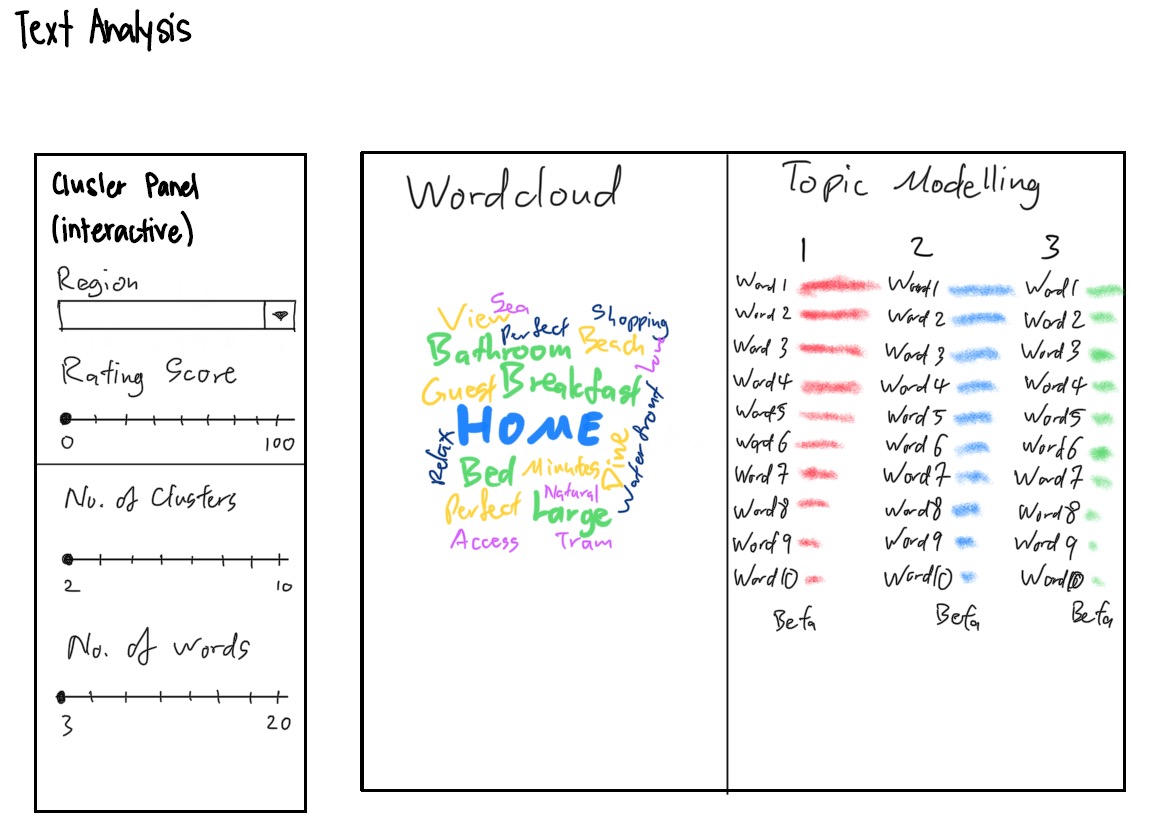 Text Analysis
Cluster Panel
(interactive)
Region
Rating Score
0 100
No. of Clusters
2 10
No. of words
3 20
Wordcloud
Sea
View
Perfect
Shopping
Bathroom
Beach
Luv
Guest
Breakfast
HOME
Waterfront
Relax
Bed
Minutes
Dine
Natural
Perfect
Large
Access
Tram
Topic Modelling
1 2 3
Word 1 Word 1 Word 1
Word 2 Word 2 Word 2
Word 3 Word 3 Word 3
Word 4 Word 4 Word 4
Word 5 Word 5 Word 5
Word 6 Word 6 Word 6
Word 7 Word 7 Word 7
Word 8 Word 8 Word 8
Word 9 Word 9 Word 9
Word 10 Word 10 Word 10
Beta Beta Beta